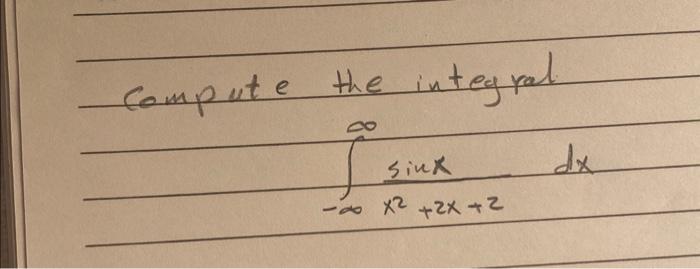 Compute the integral
∞
∫ sinx dx
-∞ x² +2x +2